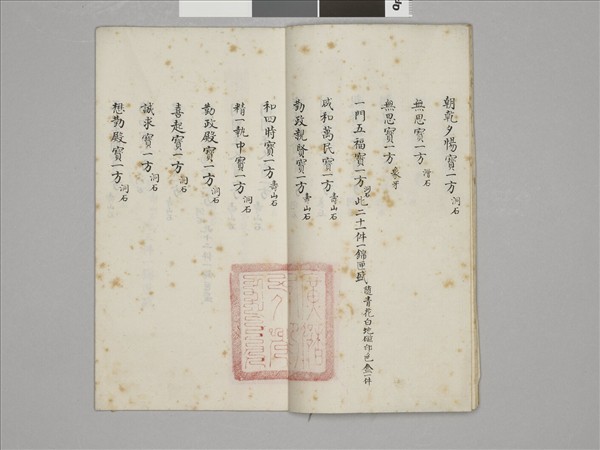 朝乾夕惕寶一方 洞石
無思寶一方 滑石
無思寶一方 象牙
一門五福寶一方 洞石 此二十一件一錦匣盛 隨青花白地磁印色盒一件
咸和萬民寶一方 壽山石
勤政親賢寶一方 壽山石
和四時寶一方 壽山石
精一執中寶一方 洞石
勤政殿寶一方 洞石
喜起寶一方 洞石
誠求寶一方 洞石
想勤殿寶一方 洞石